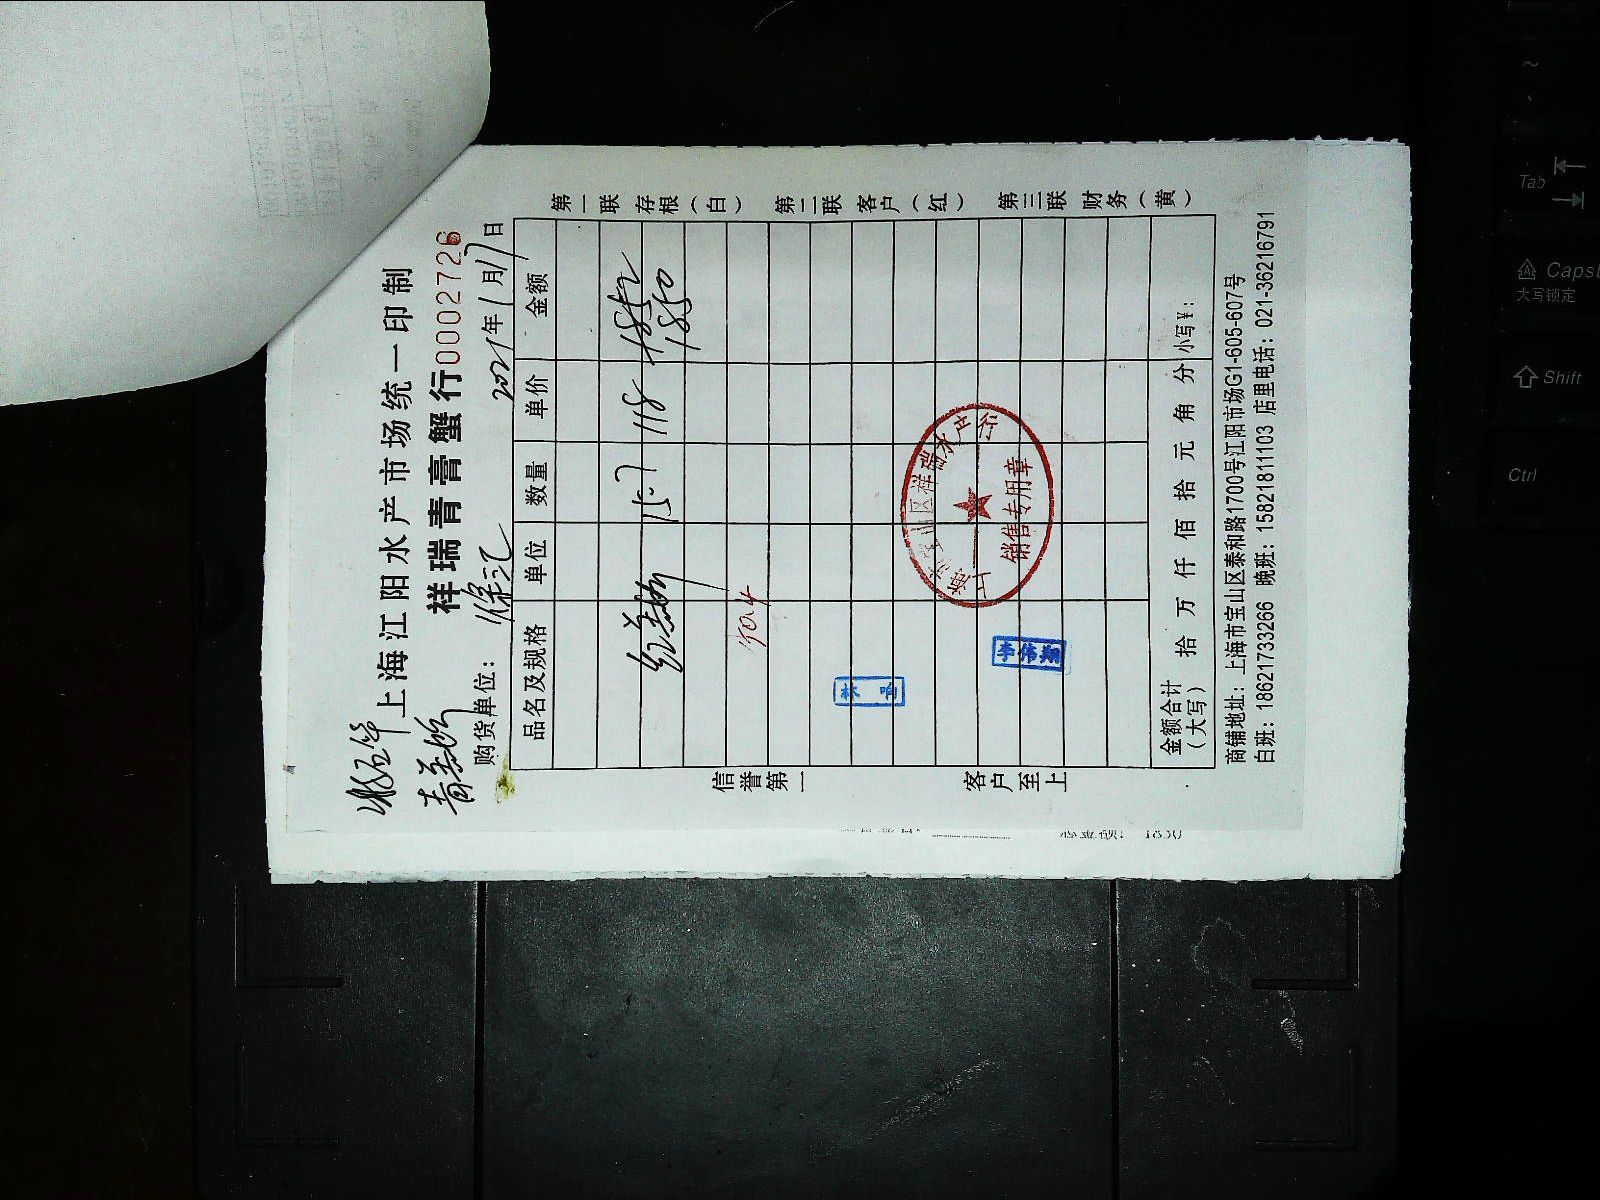 上海江阳水产市场统一印制
祥瑞青膏蟹行 0002726
购货单位： 徐汇 2021年1月17日
品名及规格 单位 数量 单价 金额
红膏蟹 15.7 118 1852
1850
林响
李伟翔
上海市宝山区祥瑞水产行
销售专用章
金额合计（大写） 拾 万 仟 佰 拾 元 角 分 小写¥：
商铺地址：上海市宝山区泰和路1700号江阳市场G1-605-607号
白班：18621733266 晚班：15821811103 店里电话：021-36216791
信誉第一 客户至上
第一联 存根（白） 第二联 客户（红） 第三联 财务（黄）
Tab
Caps
大写锁定
Shift
Ctrl